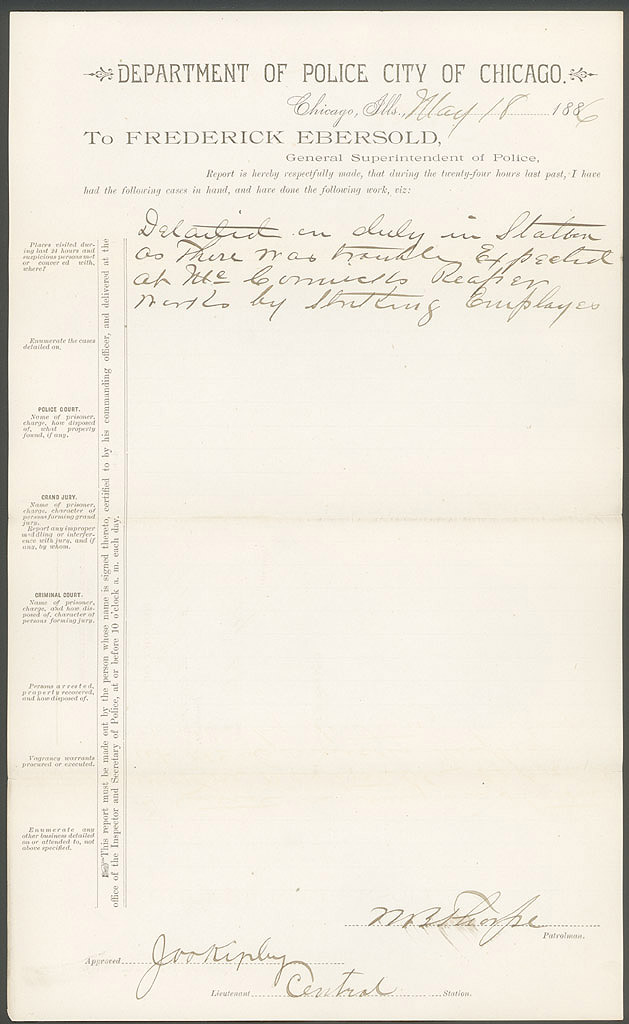 DEPARTMENT OF POLICE CITY OF CHICAGO.
Chicago, Ills., May 18 1886
To FREDERICK EBERSOLD,
General Superintendent of Police,
Report is hereby respectfully made, that during the twenty-four hours last past, I have
had the following cases in hand, and have done the following work, viz:
Detailed on duly in Station
as There was trouble Expected
at Mc Cormicks Reaper
works by Striking Employes
Places visited dur-
ing last 24 hours and
suspicious persons met
or conversed with,
where?
Enumerate the cases
detailed on.
POLICE COURT.
Name of prisoner,
charge, how disposed
of, what property
found, if any.
GRAND JURY.
Name of prisoner,
charge, character of
persons forming grand
jury.
Report any improper
meddling or interfer-
ence with jury, and if
any, by whom.
CRIMINAL COURT.
Name of prisoner,
charge, and how dis-
posed of, character of
persons forming jury.
Persons arrested,
property recovered,
and how disposed of.
Vagrancy warrants
procured or executed.
Enumerate any
other business detailed
on or attended to, not
above specified.
This report must be made out by the person whose name is signed thereto, certified to by his commanding officer, and delivered at the
office of the Inspector and Secretary of Police, at or before 10 o'clock a. m. each day.
Thorpe
Patrolman.
Approved Jno Kipley
Lieutenant Central Station.